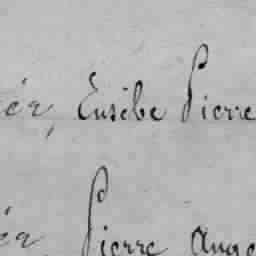 ér, Eusèbe Pierre
ér Pierre Ange